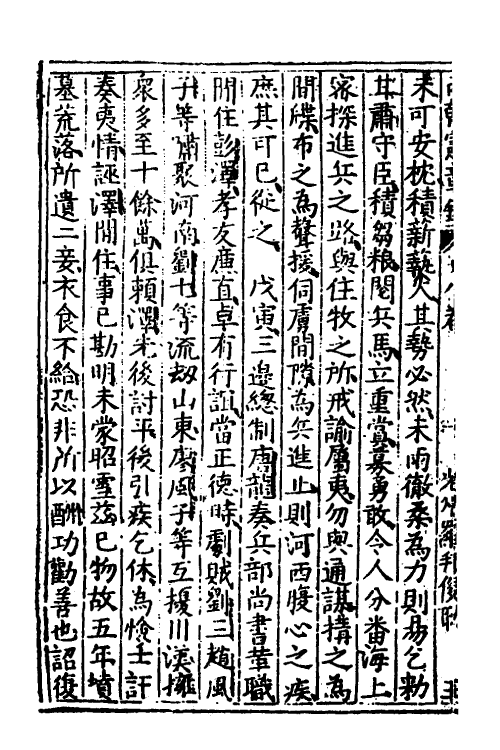 未可安枕積薪𤍠人其勢必然未雨徹桑為力則易乞勑
甘肅守臣積芻粮閱兵馬立重賞募勇敢令人分番海上
宻探進兵之路與住牧之所戒諭屬夷勿與通謀搆之為
間牒布之為聲援伺虜間隙為兵進止則河西腹心之疾
庶其可已從之 戊寅三邊總制唐龍奏兵部尚書革職
閒住彭澤孝友廉直卓有行誼當正德時劇賊劉三趙風
子等嘯聚河南劉七等流刼山東廖風子等互擾川漢擁
衆多至十餘萬俱賴澤先後討平後引疾乞休為憸壬訐
奏夷情誣澤閒住事已勘明未蒙昭雪兹已物故五年墳
墓荒落所遺二妾衣食不給恐非所以酬功勸善也詔復